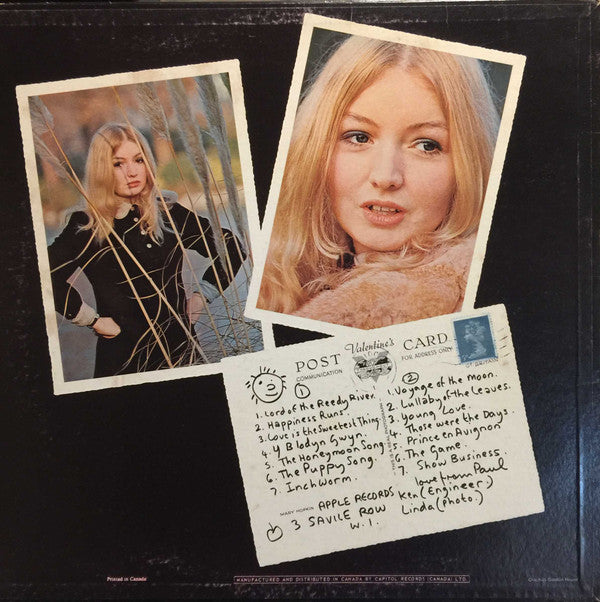 POST Valentine's CARD
COMMUNICATION FOR ADDRESS ONLY
①
1. Lord of the Reedy River.
2. Happiness Runs.
3. Love is the Sweetest Thing
4. Y Blodyn Gwyn.
5. The Honeymoon Song
6. The Puppy Song.
7. Inchworm.
②
1. Voyage of the Moon.
2. Lullaby of the Leaves.
3. Young Love.
4. Those were the Days.
5. Prince en Avignon
6. The Game.
7. Show Business.
love from Paul
Ken (Engineer)
Linda (photo.)
MARY HOPKIN APPLE RECORDS
3 SAVILE ROW
W.1.
Printed in Canada
MANUFACTURED AND DISTRIBUTED IN CANADA BY CAPITOL RECORDS (CANADA) LTD.